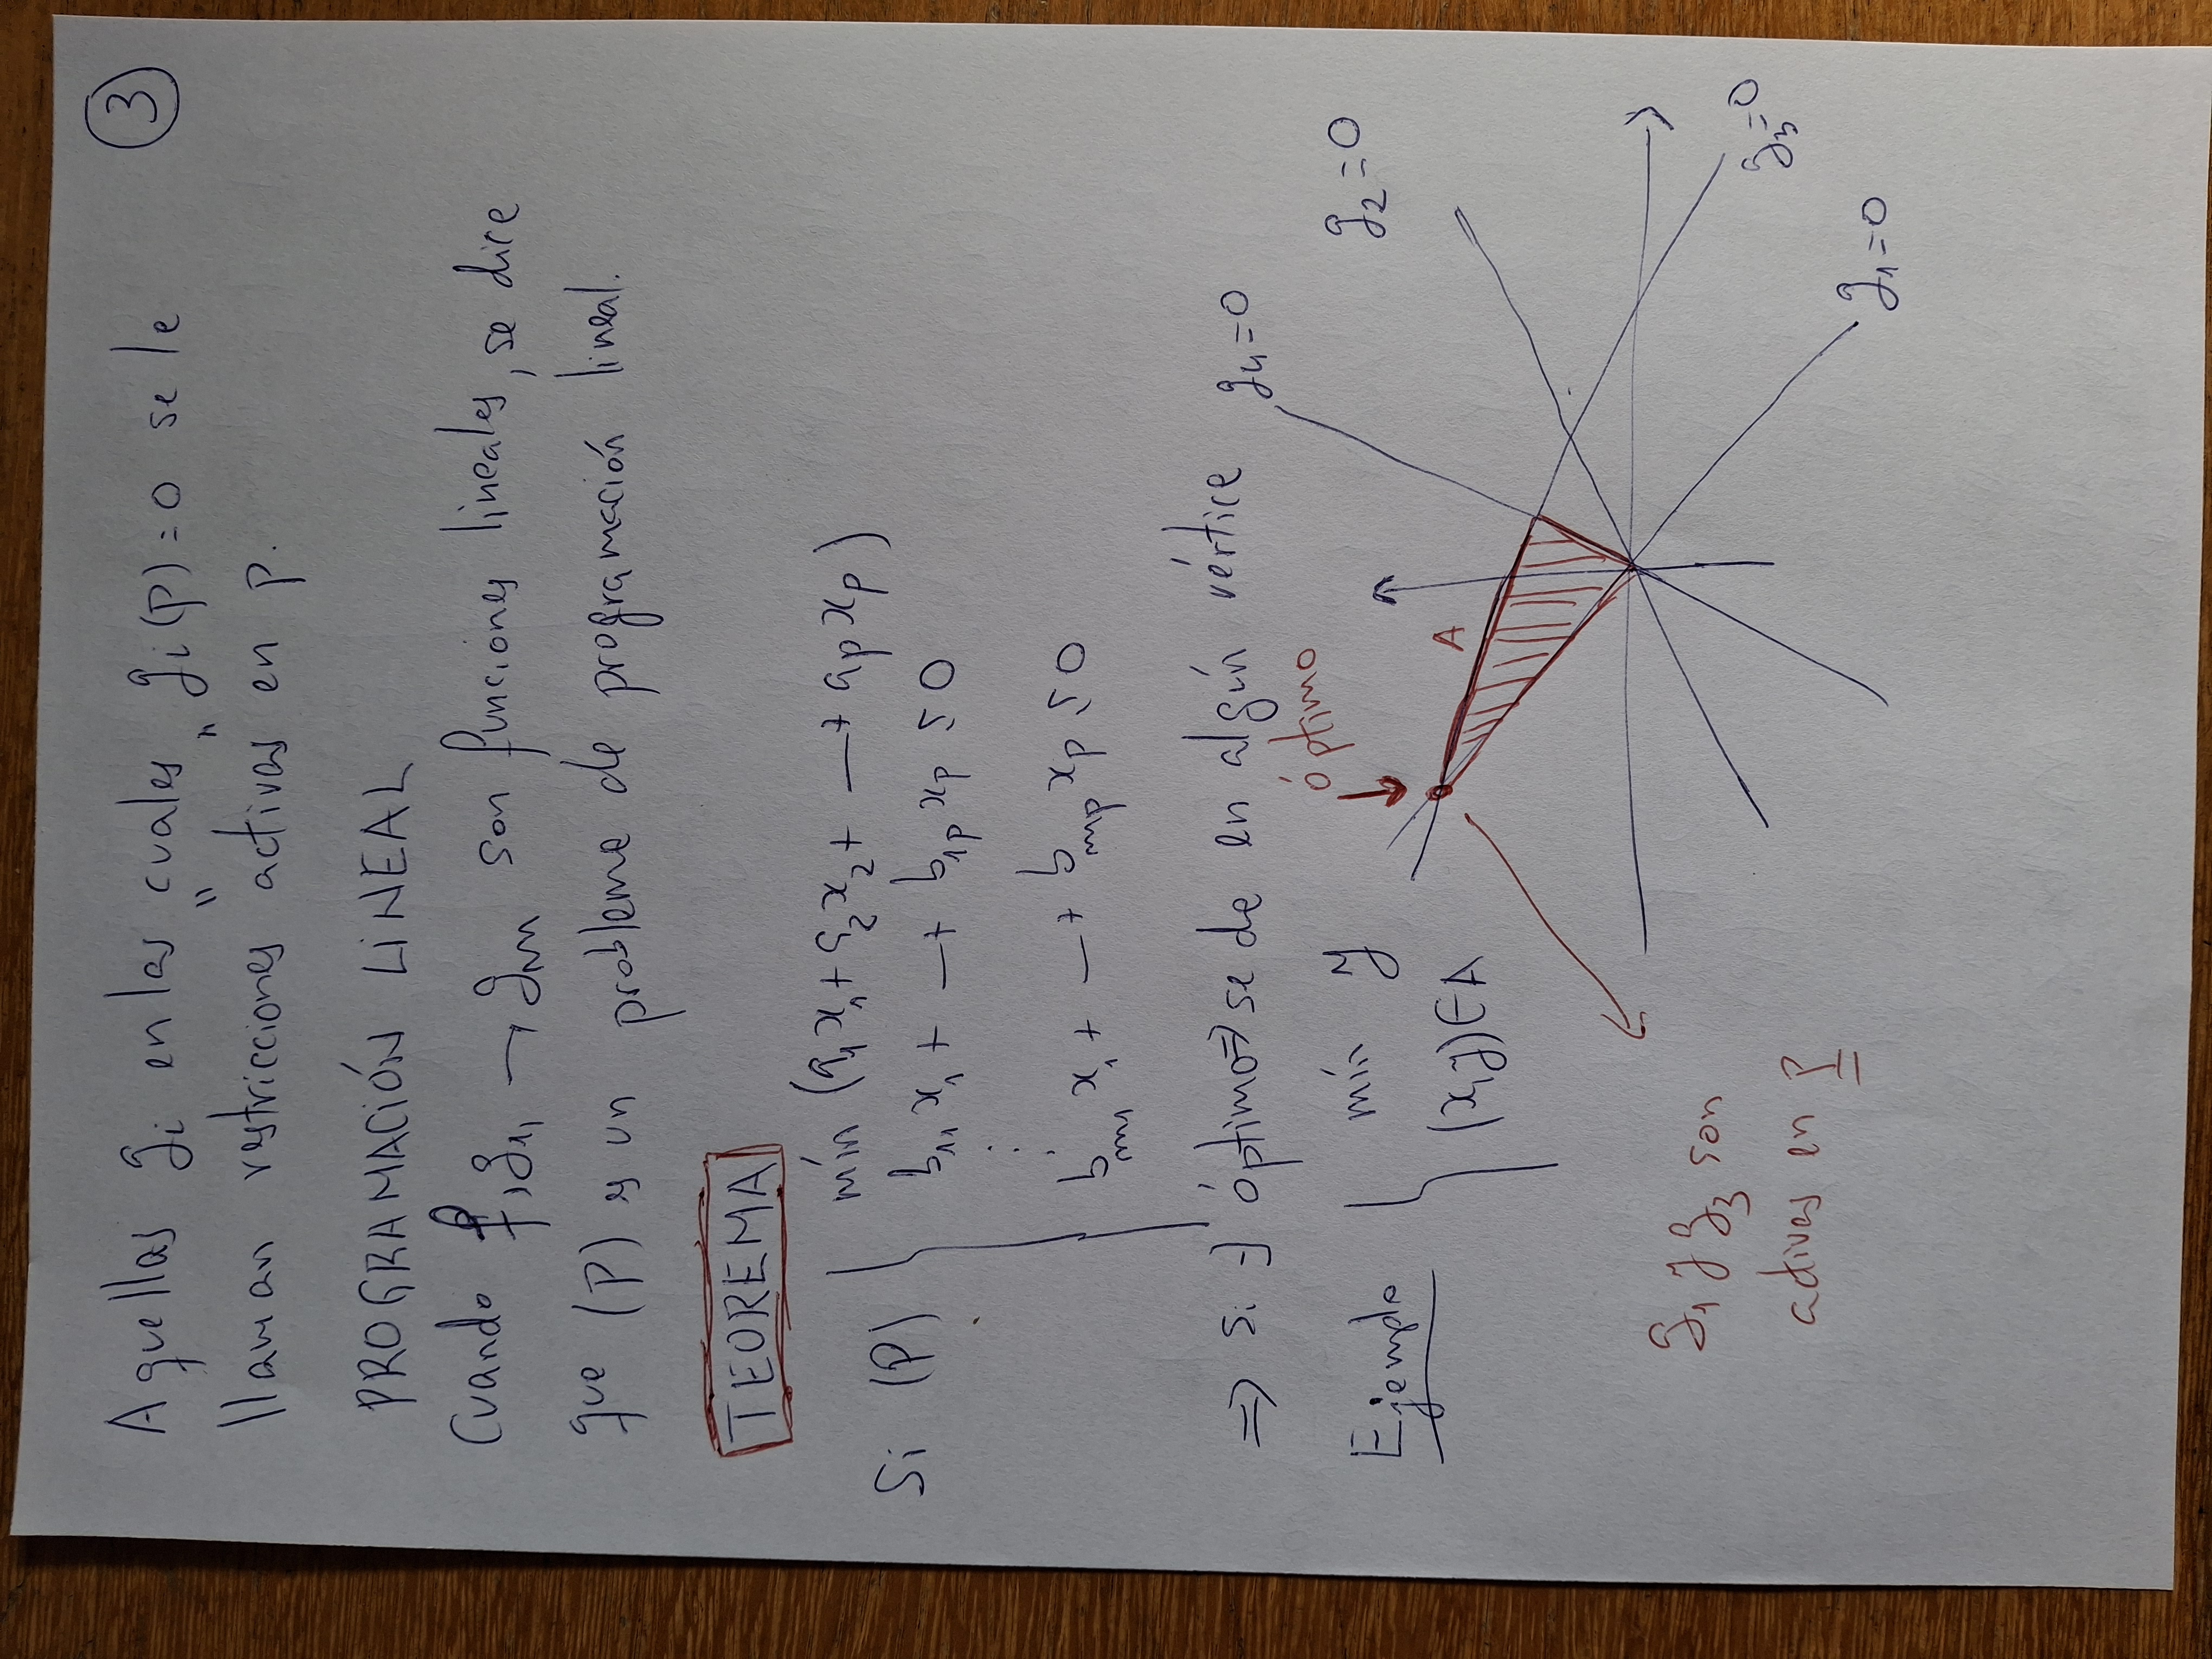 3
Aquellas gi en las cuales gi(p)=0 se le
llaman restricciones "activas" en p.
PROGRAMACIÓN LINEAL
Cuando f, g1, — gm son funciones lineales, se dice
que (P) es un problema de programación lineal.
TEOREMA
Si (P)
mín (a1x1 + a2x2 + — + apxp)
b11 x1 + — + b1p xp ≤ 0
⋮
bm1 x1 + — + bmp xp ≤ 0
⇒ si ∃ óptimo ⇒ se da en algún vértice
Ejemplo
mín y
(x,y) ∈ A
óptimo
A
g4=0
g2=0
g3=0
g1=0
g1 y g3 son
activas en p